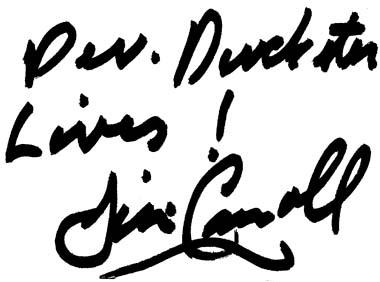 Dev. Duckster
Lives!
Jim Carroll